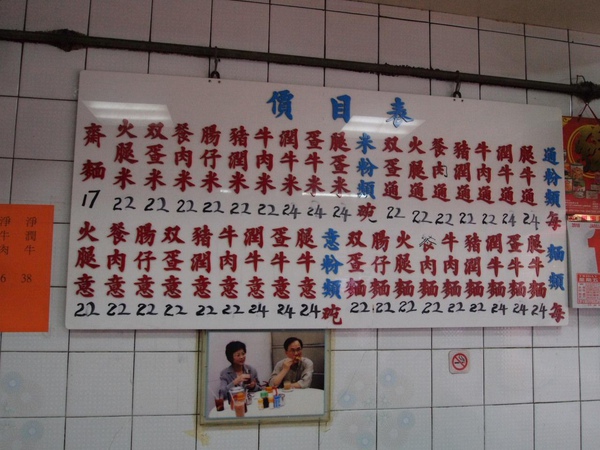 價目表
齋麵 17
火腿米 22
双蛋米 22
餐肉米 22
腸仔米 22
豬潤米 22
牛肉米 22
潤牛米 24
蛋牛米 24
腿牛米 24
米粉類 碗
双蛋通 22
火腿通 22
餐肉通 22
豬潤通 22
牛肉通 22
潤牛通 24
腿牛通 24
通粉類 每
火腿意 22
餐肉意 22
腸仔意 22
双蛋意 22
豬潤意 22
牛肉意 22
潤牛意 24
蛋牛意 24
腿牛意 24
意粉類 碗
双蛋麵 22
腸仔麵 22
火腿麵 22
谷肉麵 22
牛肉麵 22
豬潤麵 22
潤牛麵 24
蛋牛麵 24
腿牛麵 24
麵類 每
淨牛肉 6
淨潤牛 38